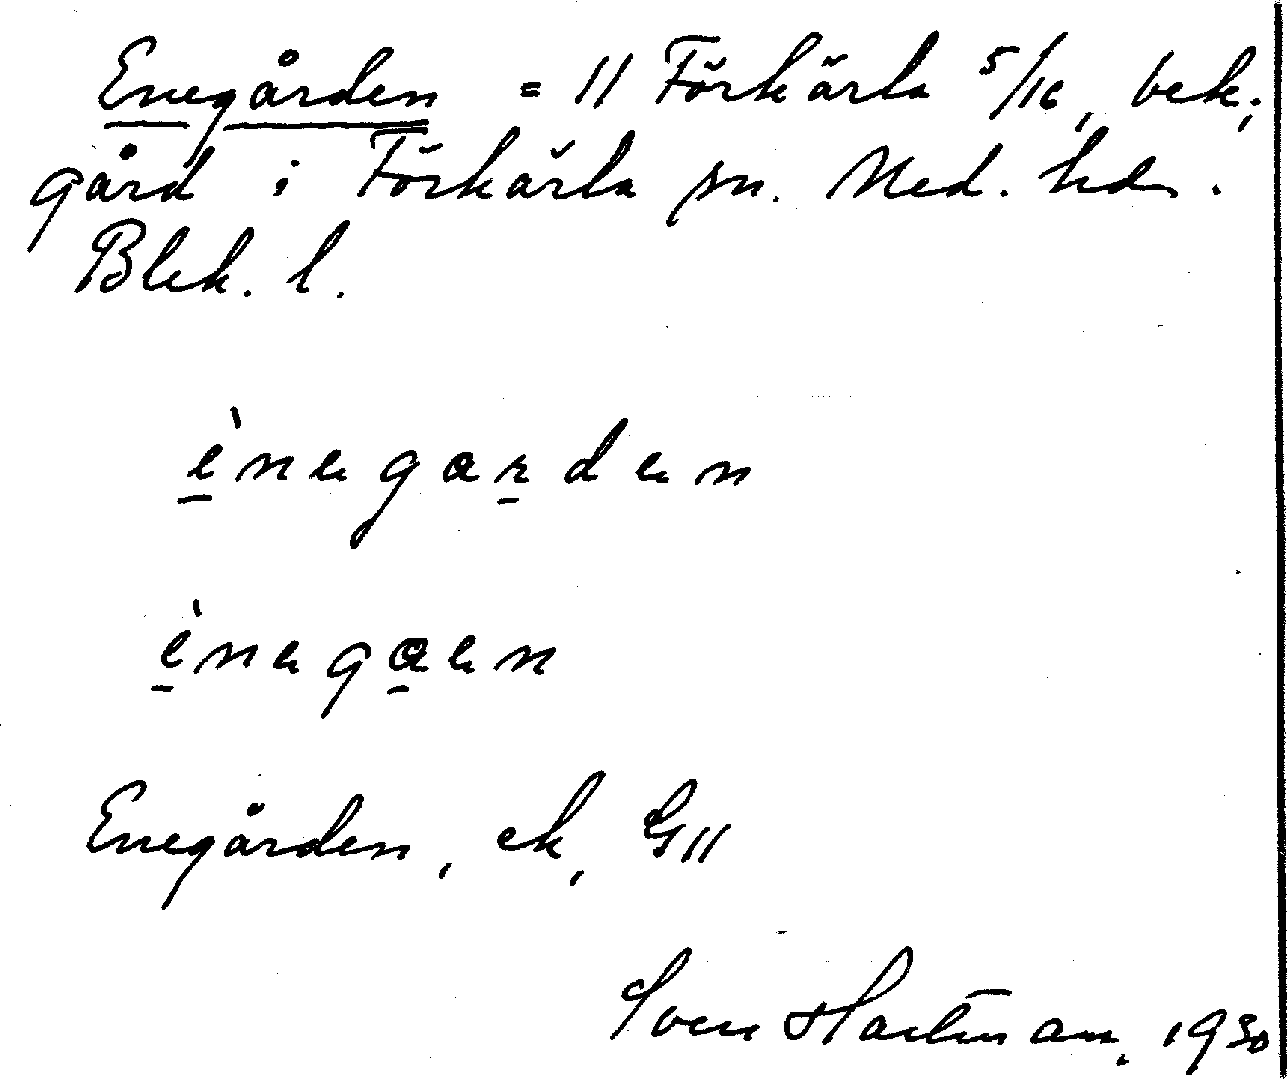 Enegården = 11 Förkärla 5/16, bek.
gård i Förkärla sn. Med. hd.
Blek. l.
ènegarden
ènegaen
Enegården, ek, G11
Sven Hartman, 1930